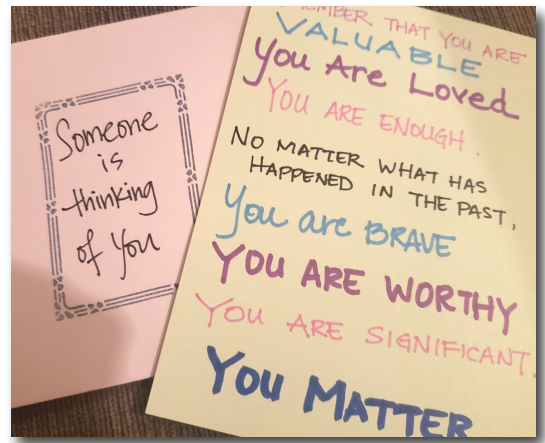 Someone
is
thinking
of You
THAT YOU ARE
VALUABLE
You Are Loved
YOU ARE ENOUGH.
NO MATTER WHAT HAS
HAPPENED IN THE PAST,
You are BRAVE
YOU ARE WORTHY
YOU ARE SIGNIFICANT.
YOU MATTER